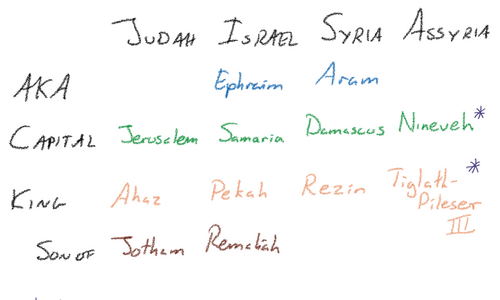 JUDAH ISRAEL SYRIA ASSYRIA
AKA Ephraim Aram
CAPITAL Jerusalem Samaria Damascus Nineveh*
KING Ahaz Pekah Rezin Tiglath-Pileser III*
SON OF Jotham Remaliah